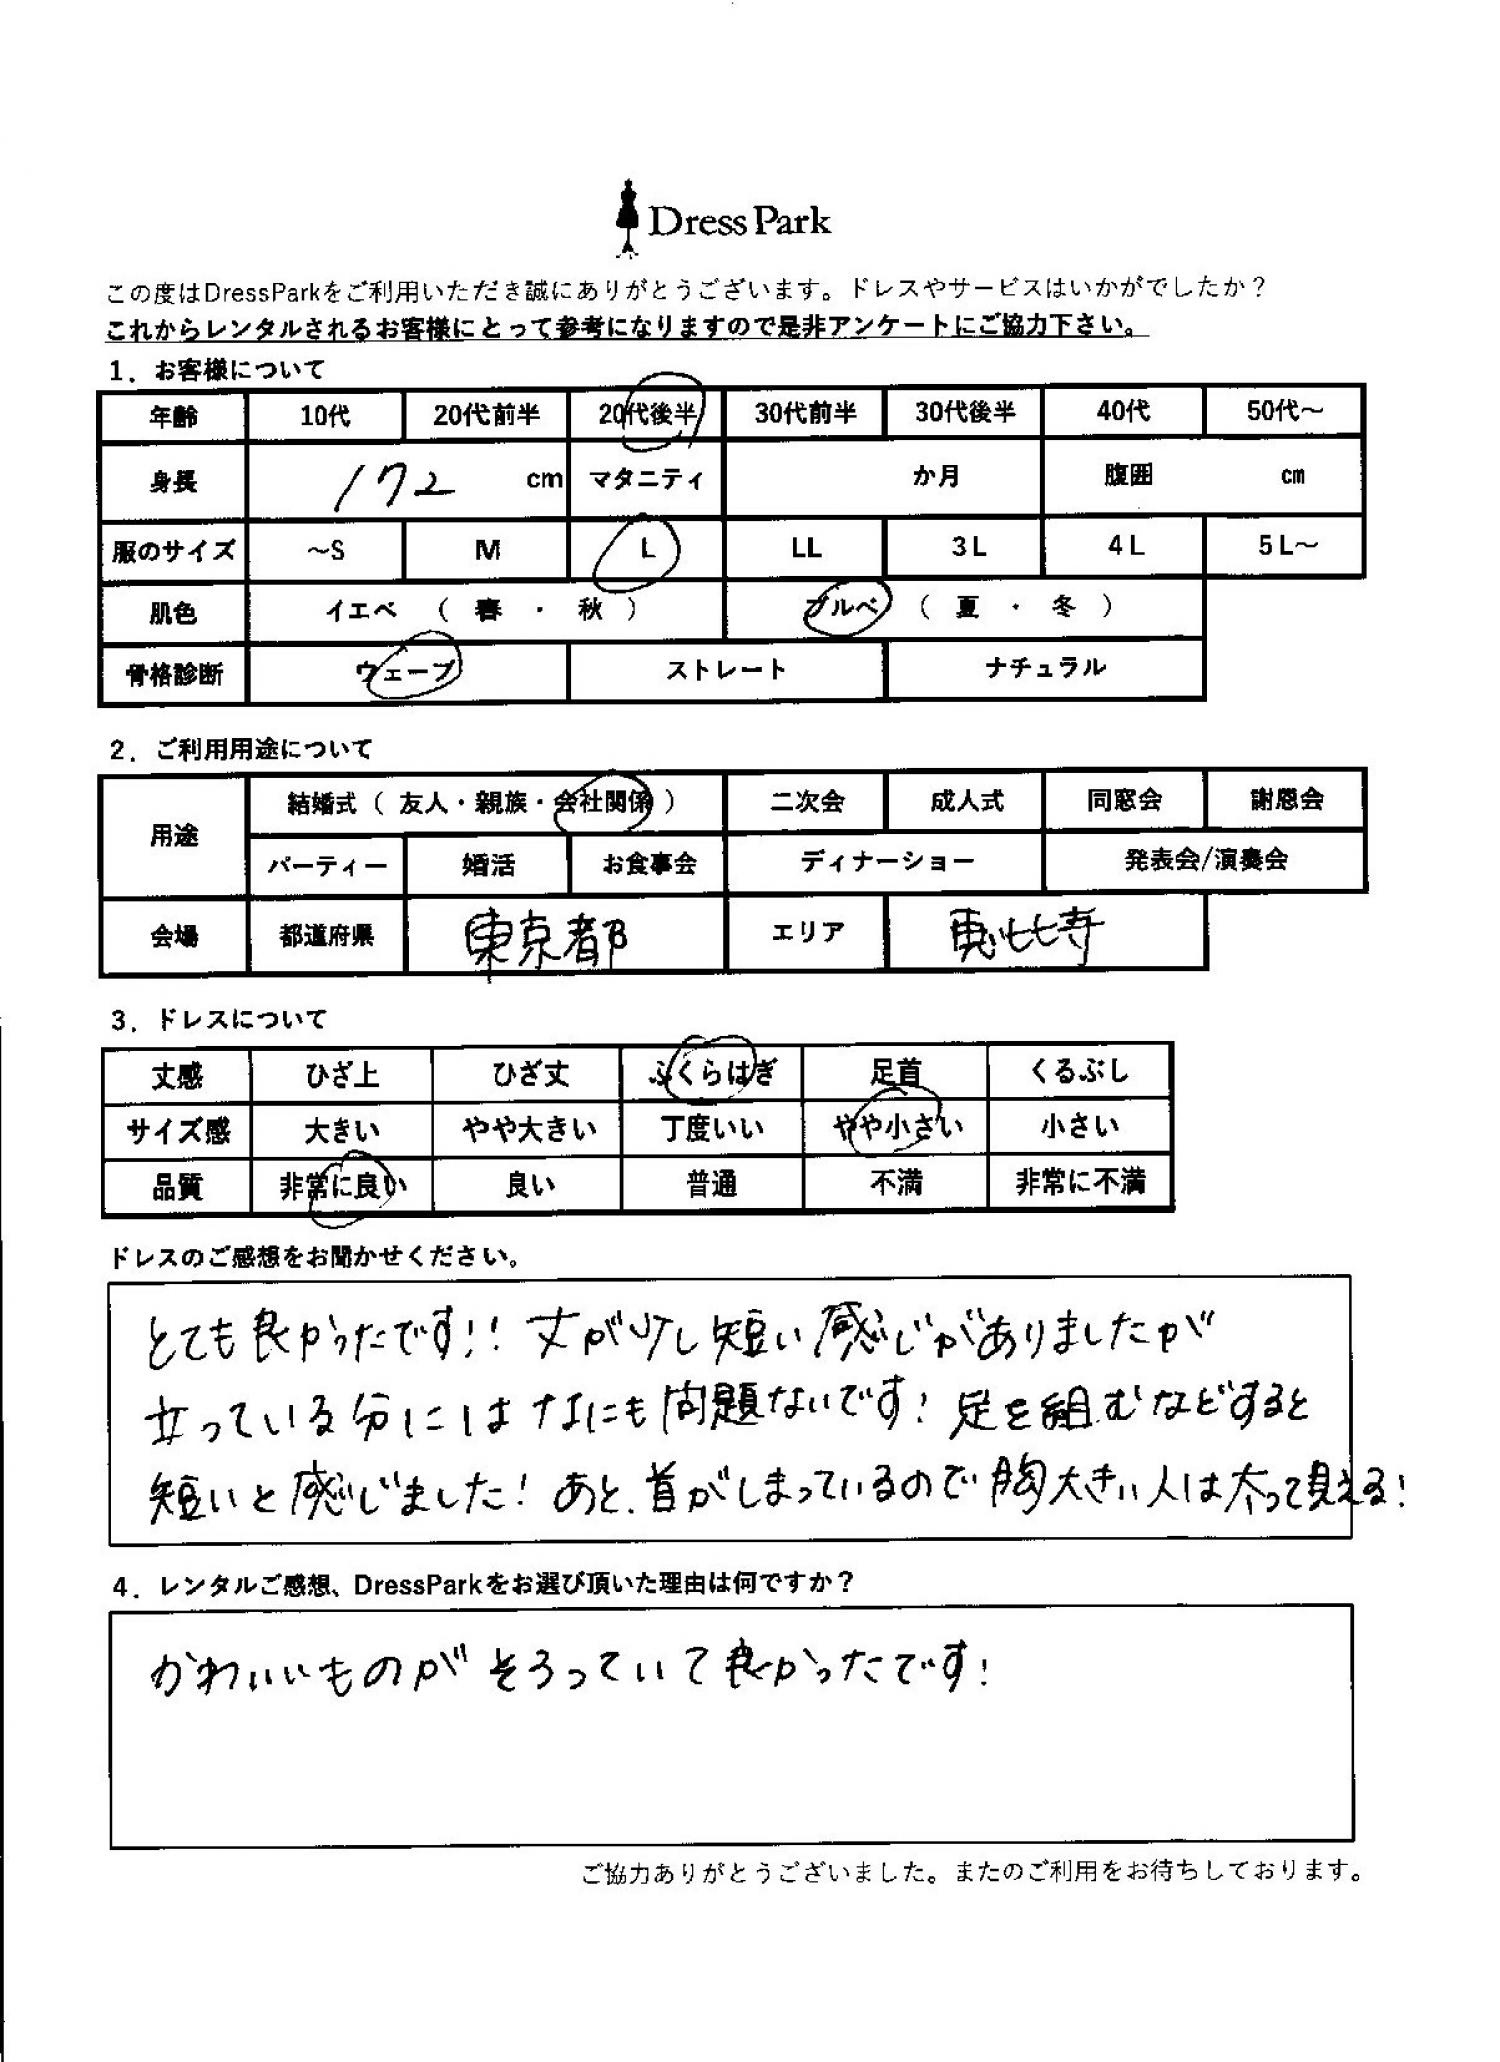 Dress Park
この度はDressParkをご利用いただき誠にありがとうございます。ドレスやサービスはいかがでしたか？
これからレンタルされるお客様にとって参考になりますので是非アンケートにご協力下さい。
1．お客様について
年齢 10代 20代前半 20代後半 30代前半 30代後半 40代 50代～
身長 172 cm マタニティ か月 腹囲 cm
服のサイズ ～S M L LL 3L 4L 5L～
肌色 イエベ （ 春 ・ 秋 ） ブルベ （ 夏 ・ 冬 ）
骨格診断 ウェーブ ストレート ナチュラル
2．ご利用用途について
用途 結婚式（ 友人・親族・会社関係 ） 二次会 成人式 同窓会 謝恩会
パーティー 婚活 お食事会 ディナーショー 発表会/演奏会
会場 都道府県 東京都 エリア 恵比寿
3．ドレスについて
丈感 ひざ上 ひざ丈 ふくらはぎ 足首 くるぶし
サイズ感 大きい やや大きい 丁度いい やや小さい 小さい
品質 非常に良い 良い 普通 不満 非常に不満
ドレスのご感想をお聞かせください。
とても良かったです!! 丈が少し短い感じがありましたが
立っている分にはなにも問題ないです! 足を組むなどすると
短いと感じました! あと、首がしまっているので胸大きい人は太って見える!
4．レンタルご感想、DressParkをお選び頂いた理由は何ですか？
かわいいものがそろっていて良かったです!
ご協力ありがとうございました。またのご利用をお待ちしております。